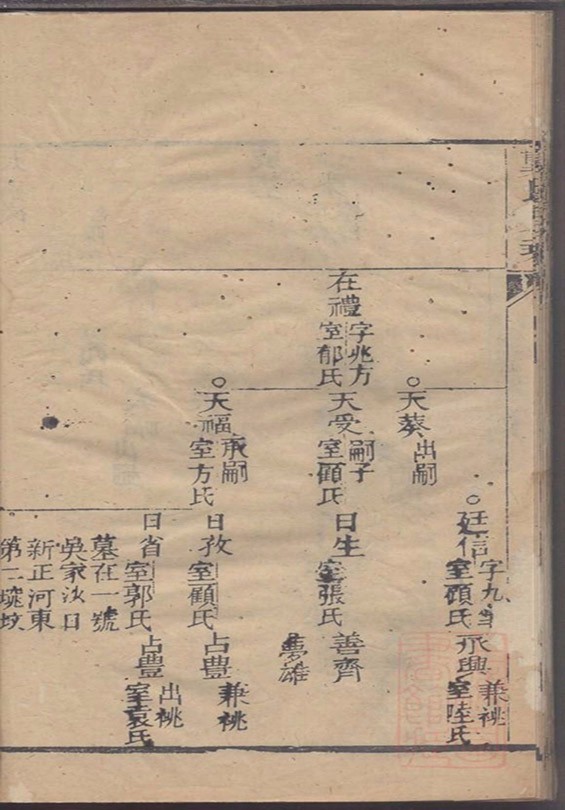 廷信 字九 室顧氏
永興 兼祧 室陸氏
天葵 出嗣
在禮 字兆方 室郁氏
天受 嗣子 室顧氏
日生 室張氏
善齊
夢雄
天福 承嗣 室方氏
日孜 室顧氏
占豊 兼祧
日省 室郭氏
占豊 出祧 室袁氏
墓在一號
吳家沙日
新正河東
第二琬坟